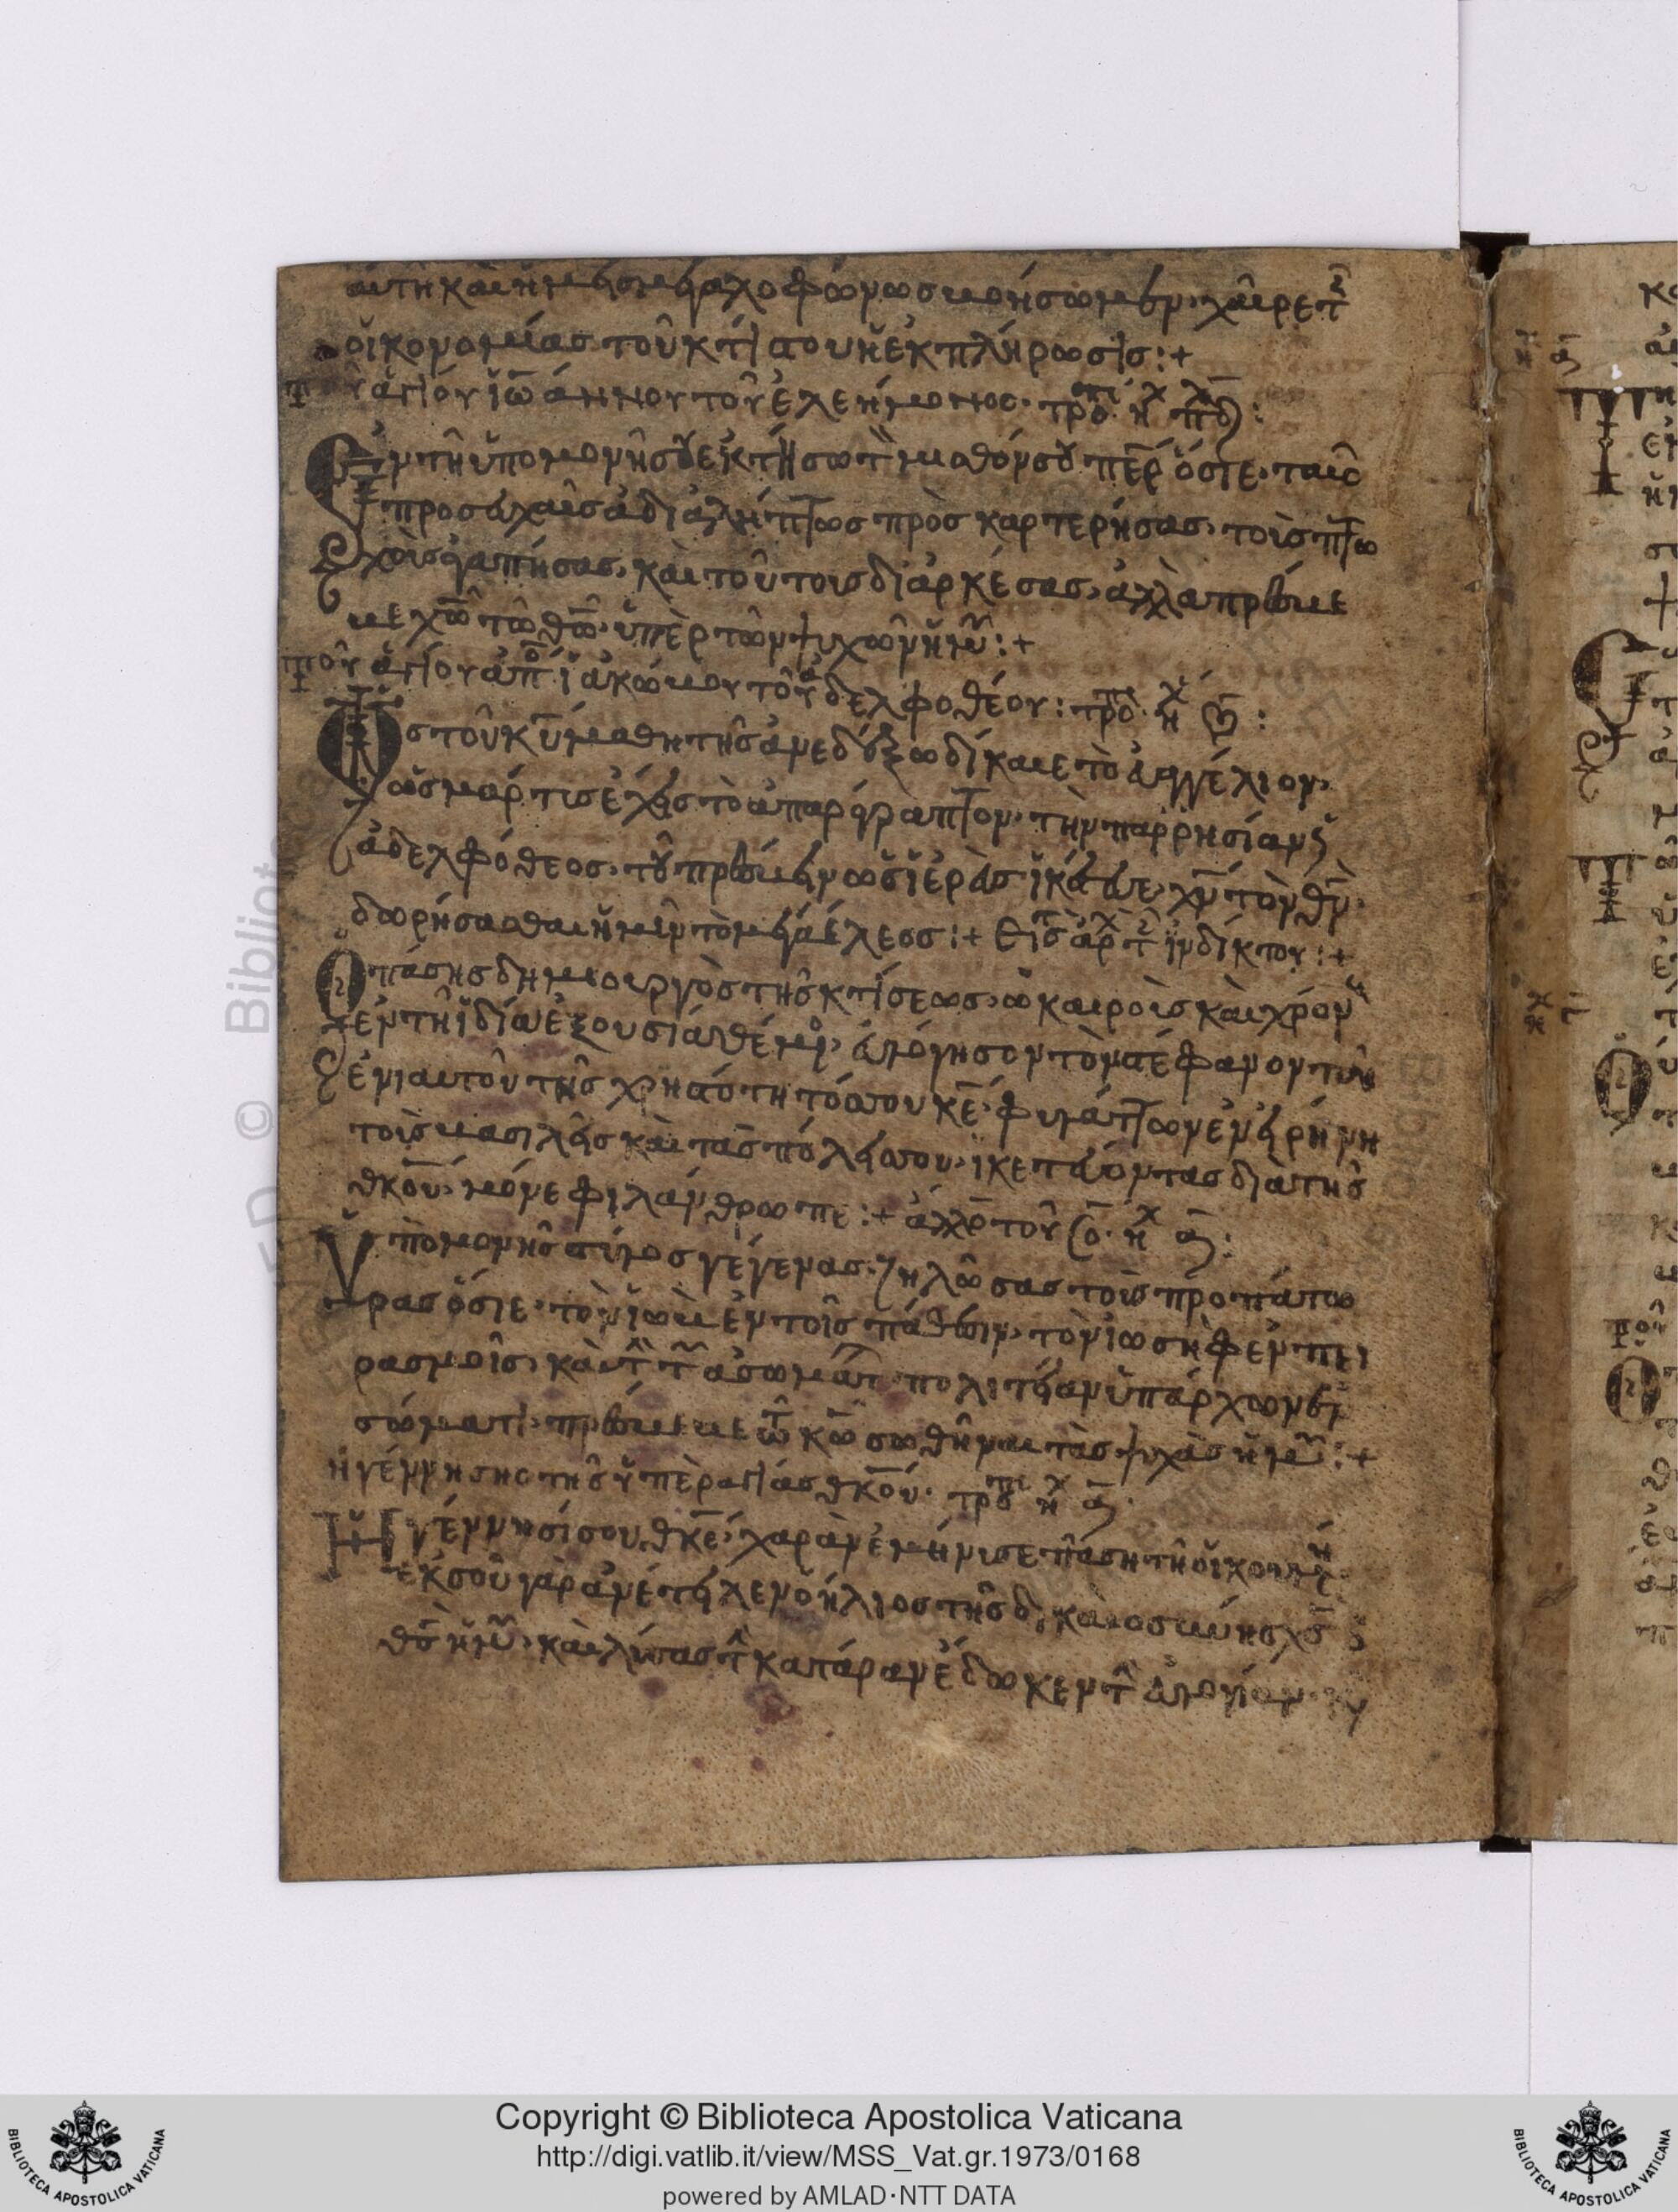 αυτη καὶ ἡμεῖς μεγαλοφώνως βοήσωμεν· χαῖρε τῆς
οἰκονομίας τοῦ κτίστου ἡ ἐκπλήρωσις :+
Τοῦ ἁγίου ἰω̅άννου τοῦ ἐλεήμονος· τροπ ἠχ πλδ :
Ἐν τῆ ὑπομονῆ σου ἐκτήσω τὸν μισθόν σου περ ὅσιε· ταῖς
προσευχαῖς ἀδιαλήπτως προσκαρτερήσας· τοὺς πτω
χοὺς ἀγαπήσας, καὶ τούτοις διαρκέσας, ἀλλὰ πρέσβευε
χω̅ τῶ θω̅· ὑπὲρ τῶν ψυχῶν ἡμῶν :+
τοῦ ἁγίου ἀπο ἰακώβου τοῦ ἀδελφοθέου : τροπ ἠχ δ :
Ὡς τοῦ κυ̅ μαθητὴς ἀνεδέξω δίκαιε τὸ εὐαγγέλιον,
ὡς μάρτις ἔχεις τὸ ἀπαράγραπτον· τὴν παρρησίαν ὡς
ἀδελφόθεος· τὸ πρεσβεύειν ὡς ἱεράς· ἱκέτευε χν̅ τὸν θν̅·
δωρήσασθαι ἡμῖν τὸ μέγα ἔλεος :+ Εἰς ἀρχ τῆς ἰνδίκτου :+
Ὁ πάσης δημιουργὸς τῆς κτίσεως, ὁ καιροὺς καὶ χρόνους
ἐν τῆ ἰδία ἐξουσία θέμενος, εὐλόγησον τὸν στέφανον τοῦ
ἐνιαυτοῦ τῆς χρηστότητός σου κε̅· φυλάττων ἐν εἰρήνη
τοὺς βασιλεῖς καὶ τὰς πόλεις σου· ἱκετεύοντας διὰ τῆς
θκου̅· μόνε φιλάνθρωπε :+ ἄλλο τοῦ ὁσ· ἠχ α :
Ὑπομονῆς στύλος γέγονας· ζηλώσας τοὺς προπάτω
ρας ὅσιε· τὸν ἰὼβ ἐν τοῖς πάθεσιν, τὸν ἰωσὴφ ἐν πει
ρασμοῖς, καὶ τὴν τῶν ἀσωμάτ πολιτείαν ὑπάρχων ἐν
σώματι· πρέσβευε τῶ κω̅ σωθῆναι τὰς ψυχὰς ἡμῶν :+
ἡ γέννησης τῆς ὑπεραγίας θκου̅· τροπ ἠχ α·
Ἡ γέννησίς σου θκε̅· χαρὰν ἐμήνυσε πάση τῆ οἰκουμένη
ἐκ σοῦ γὰρ ἀνέτειλεν ὁ ἥλιος τῆς δικαιοσύνης χς̅ ὁ
θς̅ ἡμῶν, καὶ λύσας τὴν κατάραν ἔδωκεν τὴν εὐλογίαν·
Copyright © Biblioteca Apostolica Vaticana
http://digi.vatlib.it/view/MSS_Vat.gr.1973/0168
powered by AMLAD·NTT DATA
BIBLIOTECA APOSTOLICA VATICANA
BIBLIOTECA APOSTOLICA VATICANA